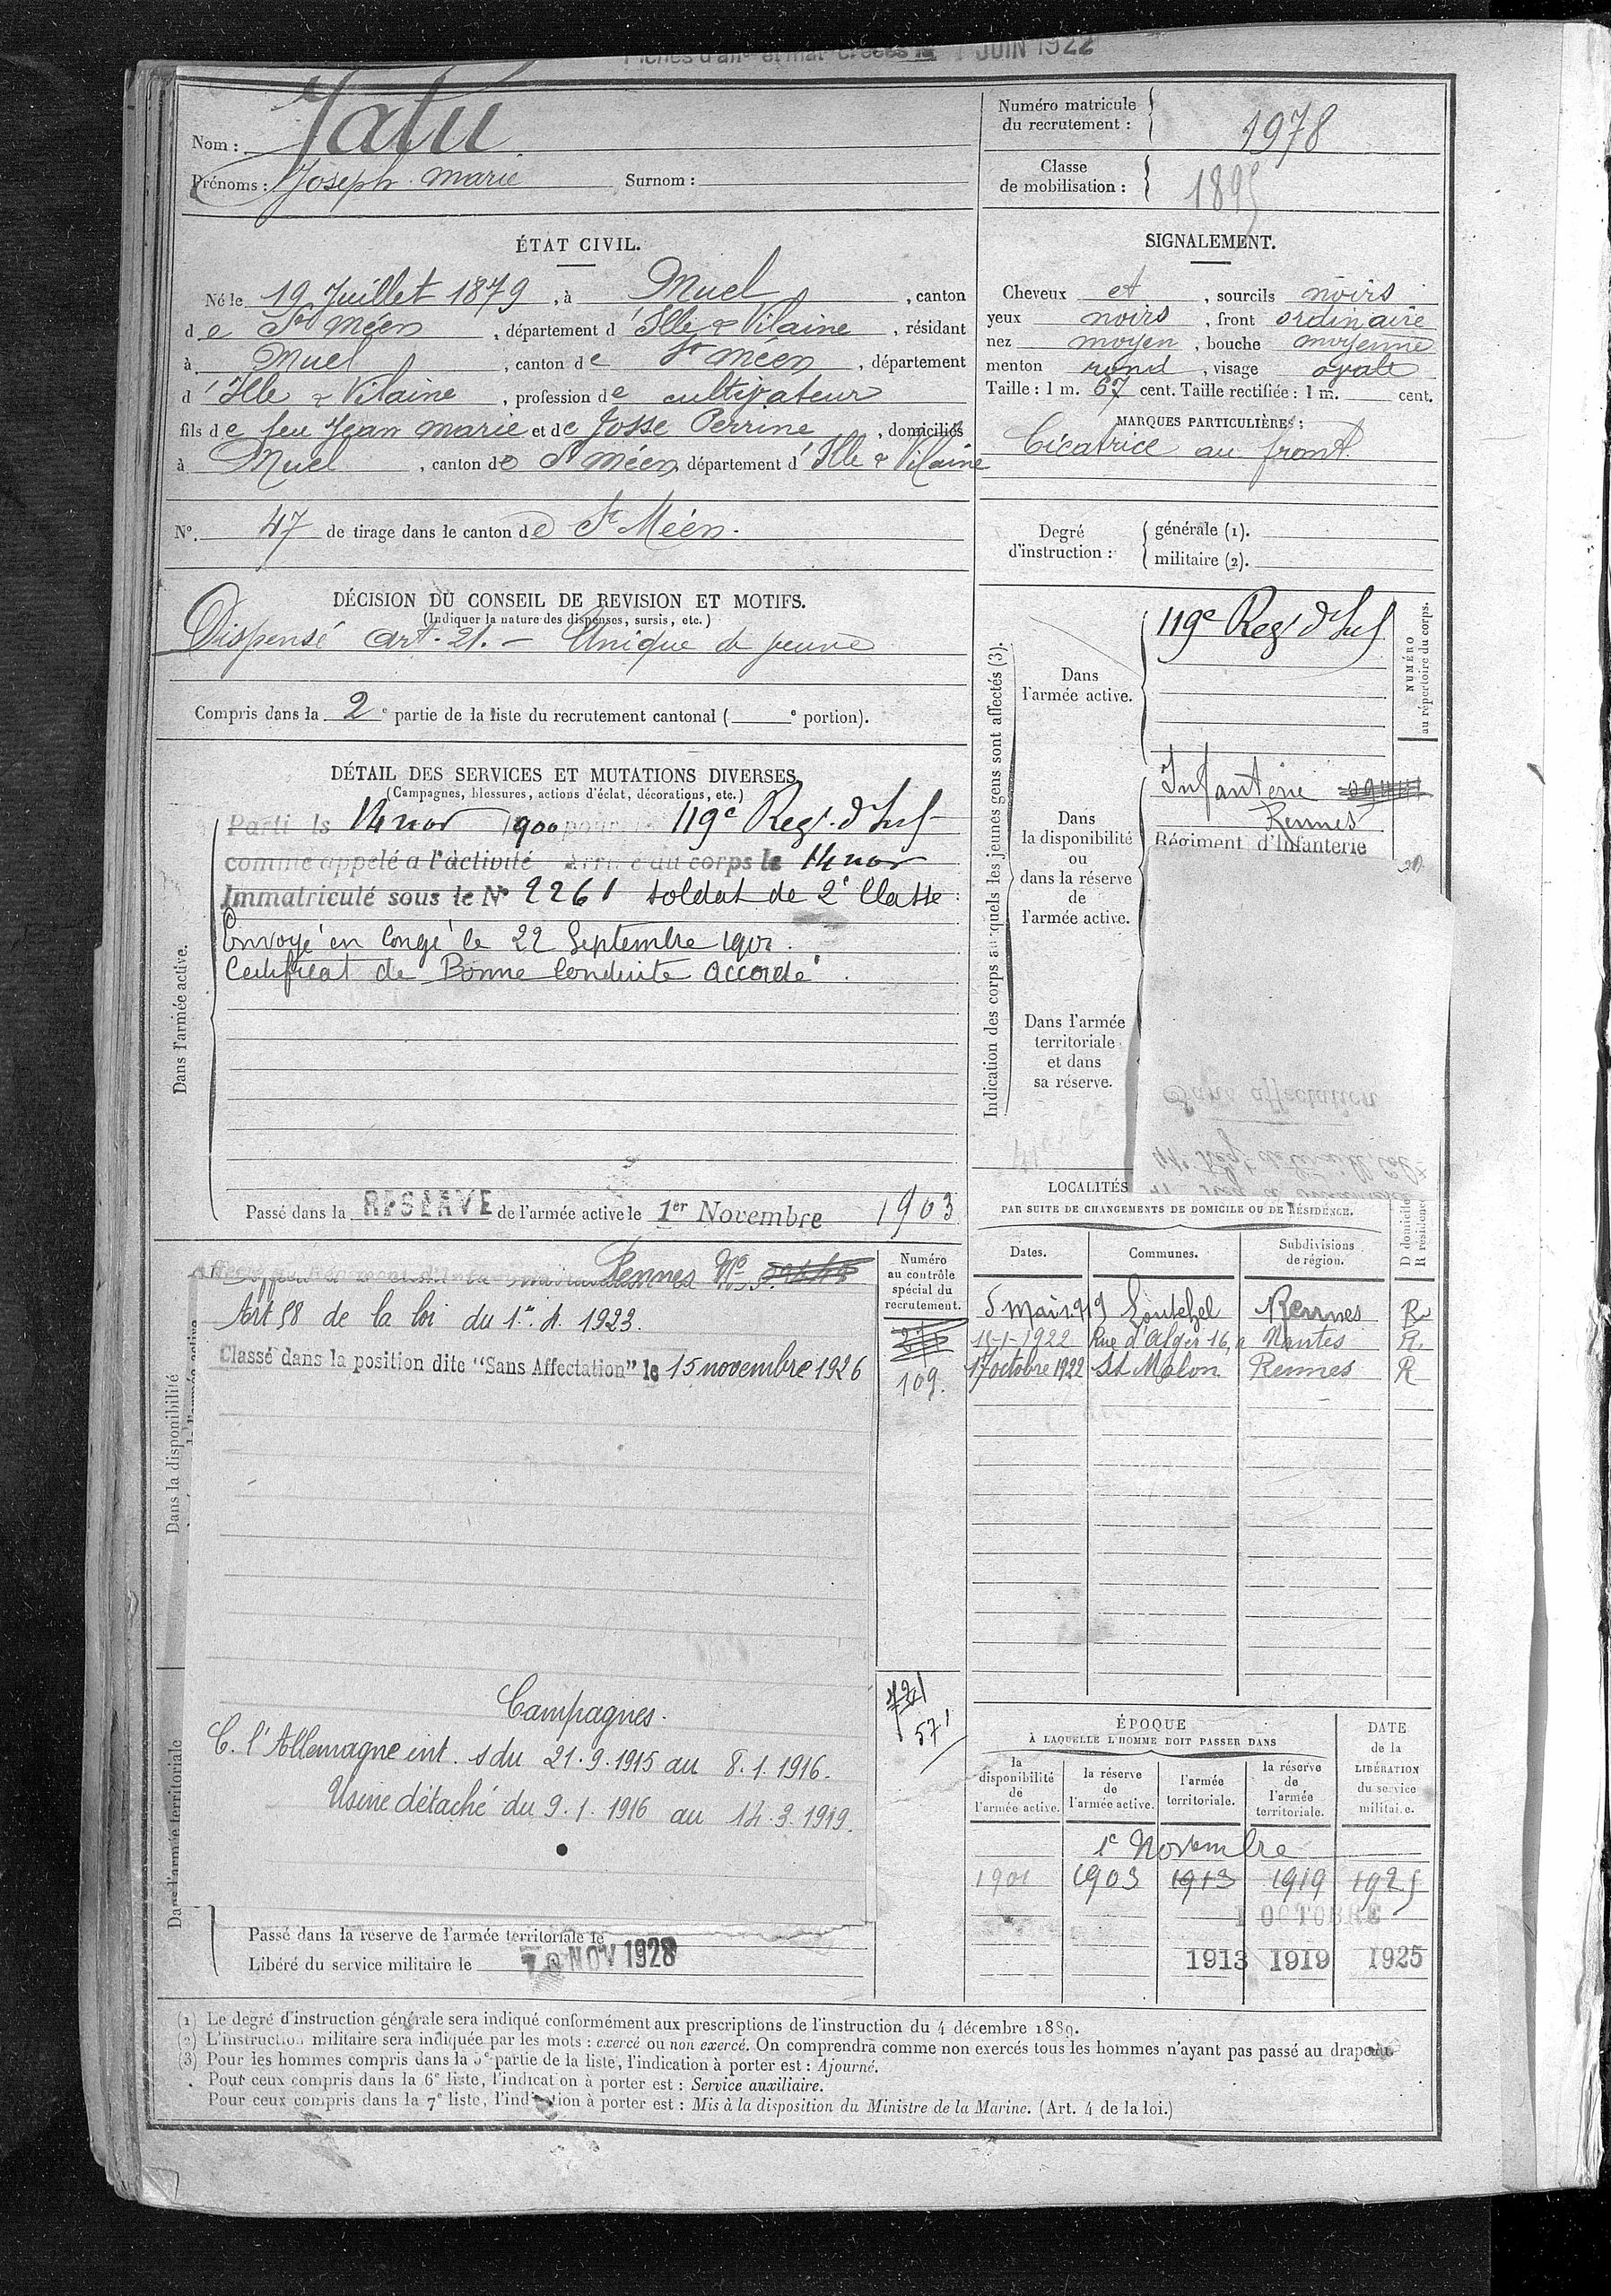 Fiches d'aff. et mat. créées le 1 JUIN 1922
Nom : Jatu
Prénoms : Joseph Marie Surnom :
Numéro matricule du recrutement : 1978
Classe de mobilisation : 1895
ÉTAT CIVIL.
Né le 19 Juillet 1879, à Muel, canton
de St Méen, département d'Ille & Vilaine, résidant
à Muel, canton de St Méen, département
d'Ille & Vilaine, profession de cultivateur
fils de feu Jean Marie et de Josse Perrine, domiciliés
à Muel, canton de St Méen, département d'Ille & Vilaine
N°. 47 de tirage dans le canton de St Méen.
SIGNALEMENT.
Cheveux et, sourcils noirs
yeux noirs, front ordinaire
nez moyen, bouche moyenne
menton rond, visage ovale
Taille : 1 m. 67 cent. Taille rectifiée : 1 m. cent.
MARQUES PARTICULIÈRES :
Cicatrice au front.
Degré d'instruction : générale (1).
militaire (2).
DÉCISION DU CONSEIL DE REVISION ET MOTIFS.
(Indiquer la nature des dispenses, sursis, etc.)
Dispensé art. 21. - Unique de veuve
Compris dans la 2e partie de la liste du recrutement cantonal ( e portion).
DÉTAIL DES SERVICES ET MUTATIONS DIVERSES.
(Campagnes, blessures, actions d'éclat, décorations, etc.)
Dans l'armée active.
Parti le 14 nov 1900 pour le 119e Regt. d'Inf
comme appelé a l'activité Arrivé au corps le 14 nov
Immatriculé sous le N° 2261 soldat de 2e Classe
Envoyé en Congé le 22 Septembre 1901.
Certificat de Bonne Conduite accordé.
Passé dans la RESERVE de l'armée active le 1er Novembre 1903
Indication des corps auxquels les jeunes gens sont affectés (3).
NUMÉRO au répertoire du corps.
Dans l'armée active.
119e Regt d'Inf
Dans la disponibilité ou dans la réserve de l'armée active.
Infanterie
Rennes
Régiment d'Infanterie
Dans l'armée territoriale et dans sa réserve.
Sans affectation
LOCALITÉS
PAR SUITE DE CHANGEMENTS DE DOMICILE OU DE RÉSIDENCE.
Dates. Communes. Subdivisions de région. D domicile R résidence
5 Mai 1919 Loutehel Rennes R
15-1-1922 Rue d'Alger 16, Nantes R.
17 octobre 1922 St Malon Rennes R
Dans la disponibilité
Rennes No
Art 58 de la loi du 1er. 4. 1923.
Classé dans la position dite "Sans Affectation" le 15 novembre 1926
Numéro au contrôle spécial du recrutement.
109.
721
571
Dans l'armée territoriale
Campagnes.
C. l'Allemagne int. s du 21.9.1915 au 8.1.1916.
Usine détaché du 9.1.1916 au 14.3.1919.
Passé dans la réserve de l'armée territoriale le
Libéré du service militaire le NOV 1928
ÉPOQUE
À LAQUELLE L'HOMME DOIT PASSER DANS
DATE de la LIBÉRATION du service militaire.
la disponibilité de l'armée active. la réserve de l'armée active. l'armée territoriale. la réserve de l'armée territoriale.
1e Novembre
1901 1903 1913 1919 1925
1 OCTOBRE
1913 1919 1925
(1) Le degré d'instruction générale sera indiqué conformément aux prescriptions de l'instruction du 4 décembre 1889.
(2) L'instruction militaire sera indiquée par les mots : exercé ou non exercé. On comprendra comme non exercés tous les hommes n'ayant pas passé au drapeau.
(3) Pour les hommes compris dans la 5e partie de la liste, l'indication à porter est : Ajourné.
Pour ceux compris dans la 6e liste, l'indication à porter est : Service auxiliaire.
Pour ceux compris dans la 7e liste, l'indication à porter est : Mis à la disposition du Ministre de la Marine. (Art. 4 de la loi.)